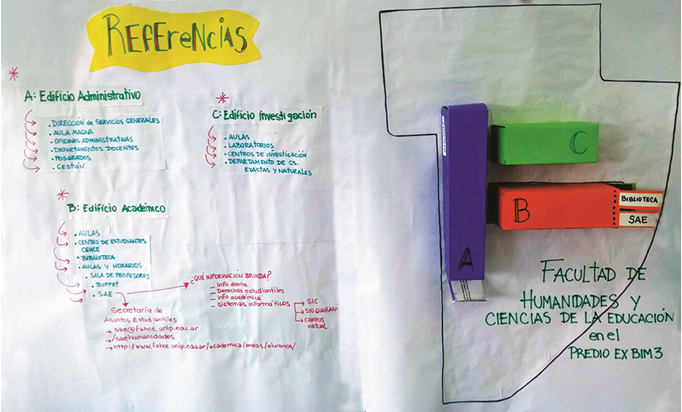 REFEreNciAs
A: Edificio Administrativo
. DIRECCIÓN de SERVICIOS GENERALES
. AULA MAGNA
. OFICINAS ADMINISTRATIVAS
. DEPARTAMENTOS DOCENTES
. POSGRADOS
. Gestión
C: Edificio Investigación
. AULAS
. LABORATORIOS
. CENTROS DE INVESTIGACIÓN
. DEPARTAMENTO DE CS.
EXACTAS y NATURALES
B: Edificio Académico
. AULAS
. CENTRO DE ESTUDIANTES
. BIBLIOTECA
. AULAS y HORARIOS
SALA DE PROFESORES
. Buffet
. SAE
¿QUÉ INFORMACIÓN BRINDA?
- Info diaria
- Derechos estudiantiles
- Info académica
- Sistemas informáticos
SIC
SIU GUARANÍ
CAMPUS
virtual
Secretaría de
Asuntos Estudiantiles
→ sae@fahce.unlp.edu.ar
→ /saehumanidades
→ http://www.fahce.unlp.edu.ar/academica/areas/alumnos/
C
B
BIBLIOTECA
SAE
A
FACULTAD DE
HUMANIDADES y
CIENCIAS DE LA EDUCACIÓN
en el
PREDIO EX BIM 3